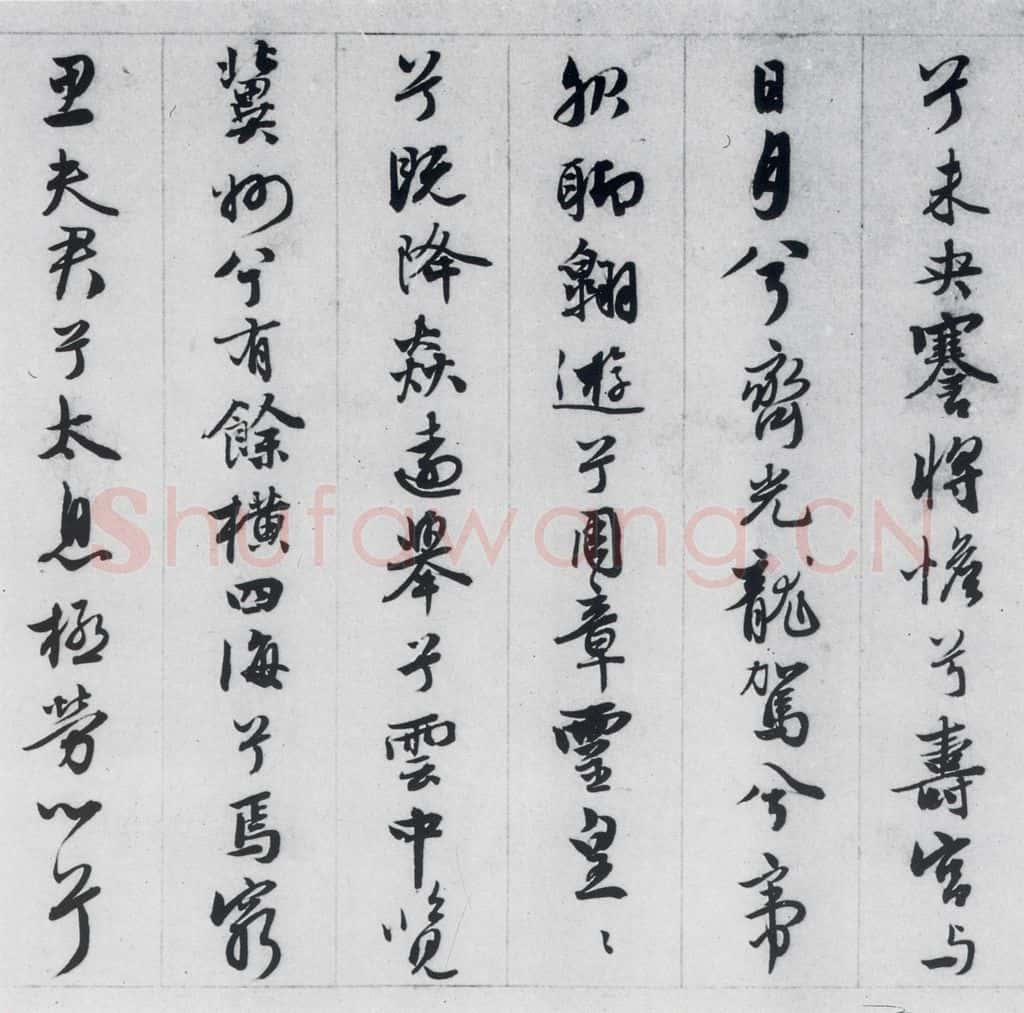 兮未央蹇將憺兮壽宮與
日月兮齊光龍駕兮帝
服聊翱遊兮周章靈皇〻
兮既降焱遠舉兮雲中覽
冀州兮有餘橫四海兮焉窮
思夫君兮太息極勞心兮
Shafawang.CN